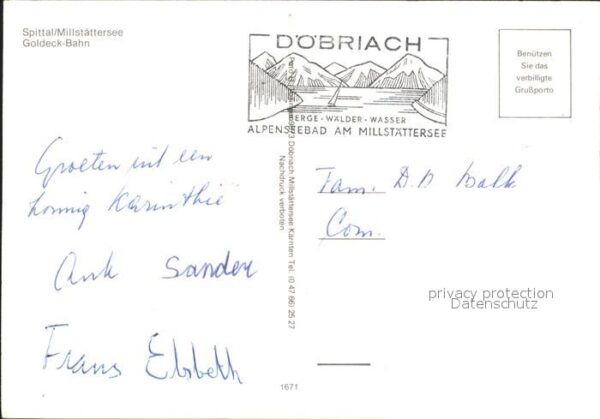 Spittal/Millstättersee
Goldeck-Bahn
DÖBRIACH
BERGE - WÄLDER - WASSER
ALPENSEEBAD AM MILLSTÄTTERSEE
Benützen
Sie das
verbilligte
Grußporto
Groeten uit een
Karinthië
Ank Sander
Frans Elsbeth
Döbriach Millstättersee Kärnten Tel. (0 47 66) 25 27
Nachdruck verboten
Fam. D.D
Com.
privacy protection
Datenschutz
1671